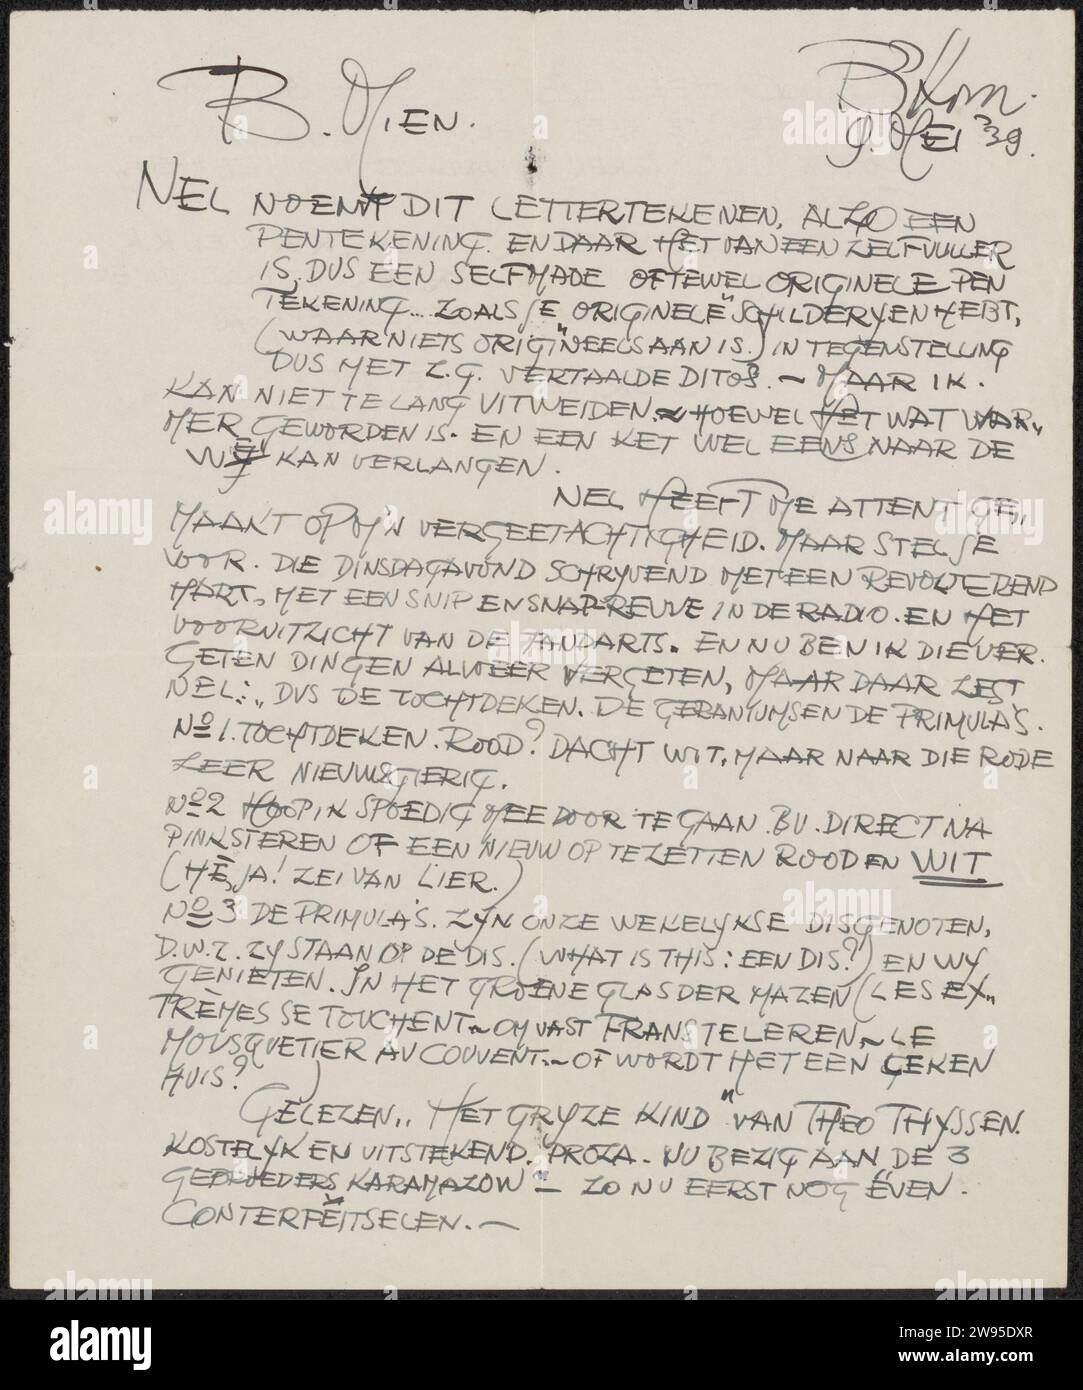 B. MIEN.
BKom.
9. MEI '39.
NEL NOEMT DIT LETTERTEKENEN, ALZO EEN
PENTEKENING. EN DAAR HET VAN EEN ZELFVULLER
IS, DUS EEN SELFMADE OFTEWEL ORIGINELE PEN
TEKENING... ZOALS JE "ORIGINELE" SCHILDERYEN HEBT,
(WAAR NIETS ORIGINEELS AAN IS.) IN TEGENSTELLING
DUS MET Z.G. VERTAALDE DITOS. ~ MAAR IK
KAN NIET TE LANG UITWEIDEN. ~ HOEWEL HET WAT WAR„
MER GEWORDEN IS. EN EEN KET WEL EENS NAAR DE
WEI KAN VERLANGEN.
NEL HEEFT ME ATTENT GE„
MAAKT OP M'N VERGEETACHTIGHEID. MAAR STEL JE
VOOR. DIE DINSDAGAVOND SCHRYVEND MET EEN REVOLTEREND
HART, MET EEN SNIP EN SNAP-REVUE IN DE RADIO. EN HET
VOORUITZICHT VAN DE TANDARTS. EN NU BEN IK DIE VER.
GETEN DINGEN ALWEER VERGETEN, MAAR DAAR ZEGT
NEL: „DUS DE TOCHTDEKEN. DE GERANIUMS EN DE PRIMULA'S.
No 1. TOCHTDEKEN. ROOD? DACHT WIT, MAAR NAAR DIE RODE
ZEER NIEUWSGIERIG.
No 2 HOOP IK SPOEDIG MEE DOOR TE GAAN. BV. DIRECT NA
PINKSTEREN OF EEN NIEUW OP TE ZETTEN ROOD EN WIT
(HÈ, JA! ZEI VAN LIER.)
No 3 DE PRIMULA'S. ZYN ONZE WEKELYKSE DISGENOTEN,
D.W.Z. ZY STAAN OP DE DIS. (WHAT IS THIS: EEN DIS?) EN WY
GENIETEN. IN HET GROENE GLAS DER MAZEN (LES EX„
TRÈMES SE TOUCHENT ~ OM VAST FRANS TE LEREN, ~ LE
MOUSQUETIER AU COUVENT. ~ OF WORDT HET EEN GEKEN
HUIS?)
GELEZEN „HET GRYZE KIND" VAN THEO THYSSEN.
KOSTELYK EN UITSTEKEND. PROZA. NU BEZIG AAN DE 3
GEBROEDERS KARAMAZOW — ZO NU EERST NOG ÉVEN.
CONTERFEITSELEN. —
alamy
www.alamy.com
Image ID: 2W95DXR